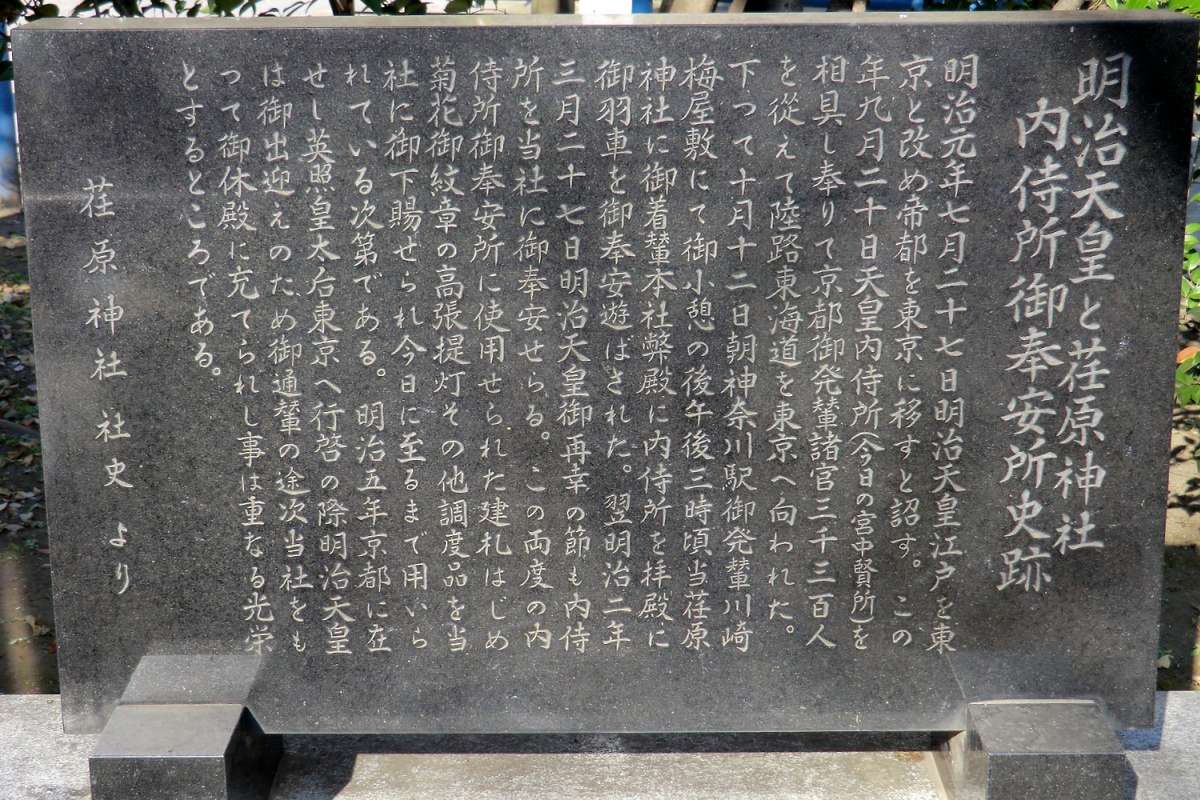 明治天皇と荏原神社
内侍所御奉安所史跡
明治元年七月二十七日明治天皇江戸を東
京と改め帝都を東京に移すと詔す。この
年九月二十日天皇内侍所(今日の宮中賢所)を
相具し奉りて京都御発輦諸官三千三百人
を從えて陸路東海道を東京へ向われた。
下つて十月十二日朝神奈川駅御発輦川崎
梅屋敷にて御小憩の後午後三時頃当荏原
神社に御着輦本社幣殿に内侍所を拝殿に
御羽車を御奉安遊ばされた。翌明治二年
三月二十七日明治天皇御再幸の節も内侍
所を当社に御奉安せらる。この両度の内
侍所御奉安所に使用せられた建札はじめ
菊花御紋章の高張提灯その他調度品を当
社に御下賜せられ今日に至るまで用いら
れている次第である。明治五年京都に在
せし英照皇太后東京へ行啓の際明治天皇
は御出迎えのため御通輦の途次当社をも
つて御休殿に充てられし事は重なる光栄
とするところである。
荏原神社社史より